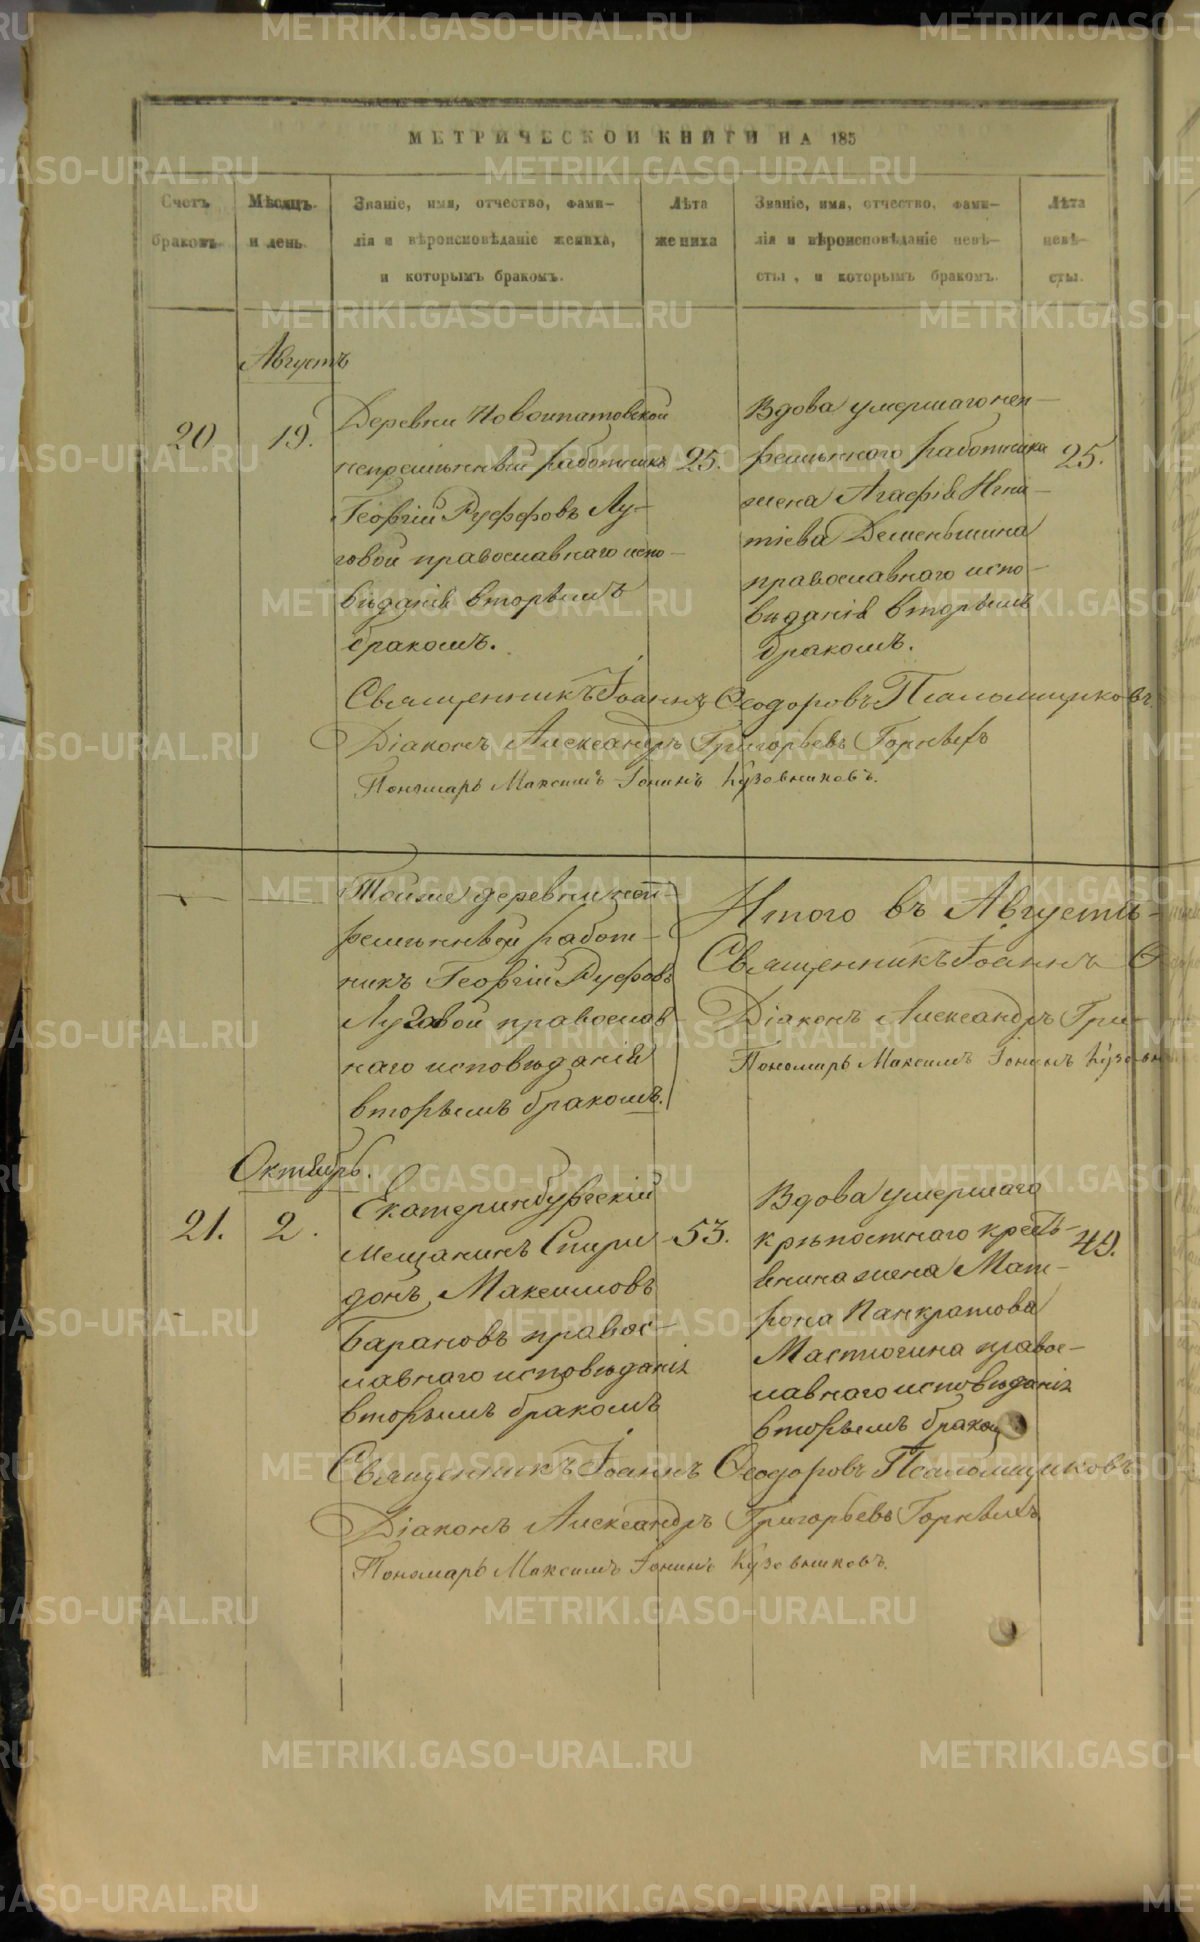 МЕТРИЧЕСКОЙ КНИГИ НА 185
Счетъ браковъ.
Мѣсяцъ и день.
Званіе, имя, отчество, фами-
лія и вѣроисповѣданіе жениха,
и которымъ бракомъ.
Лѣта
жениха
Званіе, имя, отчество, фами-
лія и вѣроисповѣданіе невѣ-
сты, и которымъ бракомъ.
Лѣта
невѣ-
сты.
Августъ
20
19.
Деревни Новоипатовской
непремѣнный работникъ
Георгій Руффовъ Лу-
говой православнаго испо-
вѣданія вторымъ
бракомъ.
25.
Вдова умершаго неп-
ремѣннаго работника
жена Агафія Игна-
тіева Деменьшина
православнаго испо-
вѣданія вторымъ
бракомъ.
25.
Священникъ Іоаннъ Ѳеодоровъ Псаломщиковъ.
Діаконъ Александръ Григорьевъ Горныхъ
Пономарь Максимъ Іонинъ Кузовниковъ.
Тойже деревни неп-
ремѣнный работ-
никъ Георгій Руфовъ
Луговой православ-
наго исповѣданія
вторымъ бракомъ.
Итого въ Августѣ-
Священникъ Іоаннъ Ѳ
Діаконъ Александръ Гри-
Пономарь Максимъ Іонинъ Кузовн
Октябрь.
21.
2.
Екатеринбургскій
мещанинъ Спири-
донъ Максимовъ
Барановъ правос-
лавнаго исповѣданія
вторымъ бракомъ
53.
Вдова умершаго
крѣпостнаго кресть-
янина жена Мат-
рона Панкратова
Мастюгина правос-
лавнаго исповѣданія
вторымъ браком
49.
Священникъ Іоаннъ Ѳеодоровъ Псаломщиковъ
Діаконъ Александръ Григорьевъ Горныхъ
Пономарь Максимъ Іонинъ Кузовниковъ.
METRIKI.GASO-URAL.RU